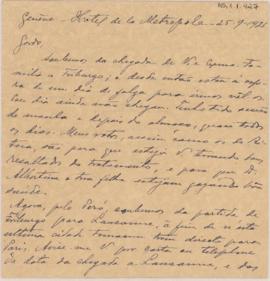 Genève - Hotel de la Metropole - 25-9-1921
Gordo,
Soubemos da chegada de V. e Exma. Fa-
milia a Friburgo; e desde então estou á espera
de um dia de folga para irmos vel-os.
Esse dia ainda não chegou. Tenho tido sessões
de manhã e depois do almoço, quasi todos
os dias. Meus votos, assim como os de Ri-
beiro, são para que esteja V. tirando bons
resultados do tratamento e para que D.
Albertina e sua filha estejam gozando bôa
saude.
Agora, pelo Peró, soubemos da partida de
Friburgo para Lausanne, a fim de n'esta
ultima cidade tomarem trem directo para
Paris. Avise-me V. por carta ou telephone
da data da chegada a Lausanne, e das